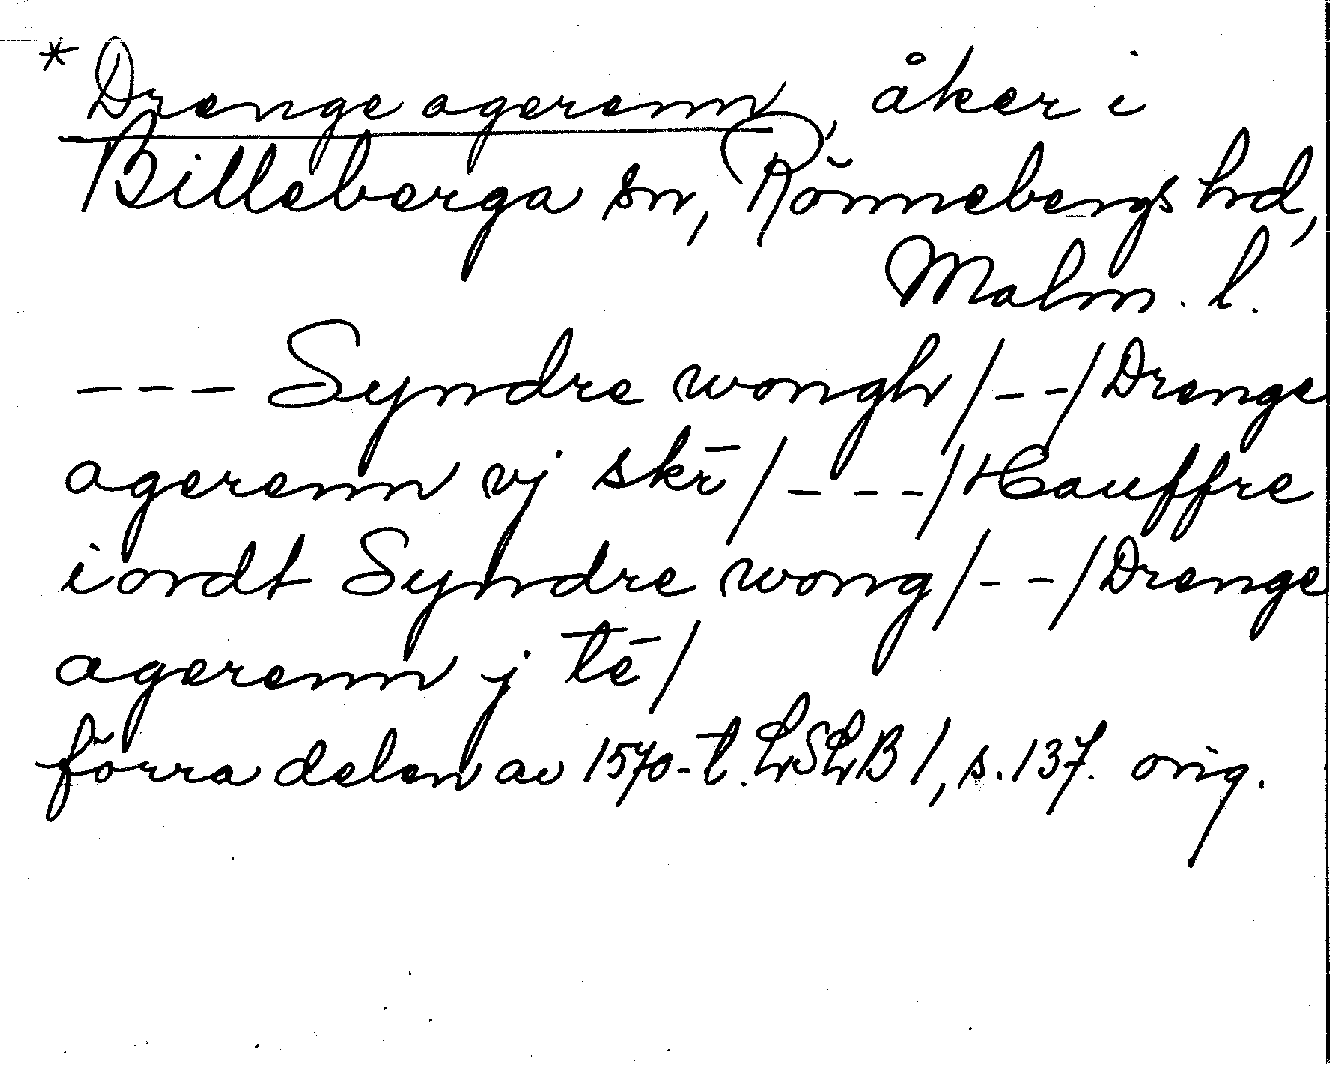 * Drenge agerenn, åker i
Billeberga sn, Rönnebergs hd,
Malm. l.
--- Syndre wongh/--/Drenge
agerenn vj skr̄/---/Hauffre
iordt Syndre wong/--/Drenge
agerenn j tē/
förra delen av 1570-t. LSLB 1, s. 137. orig.